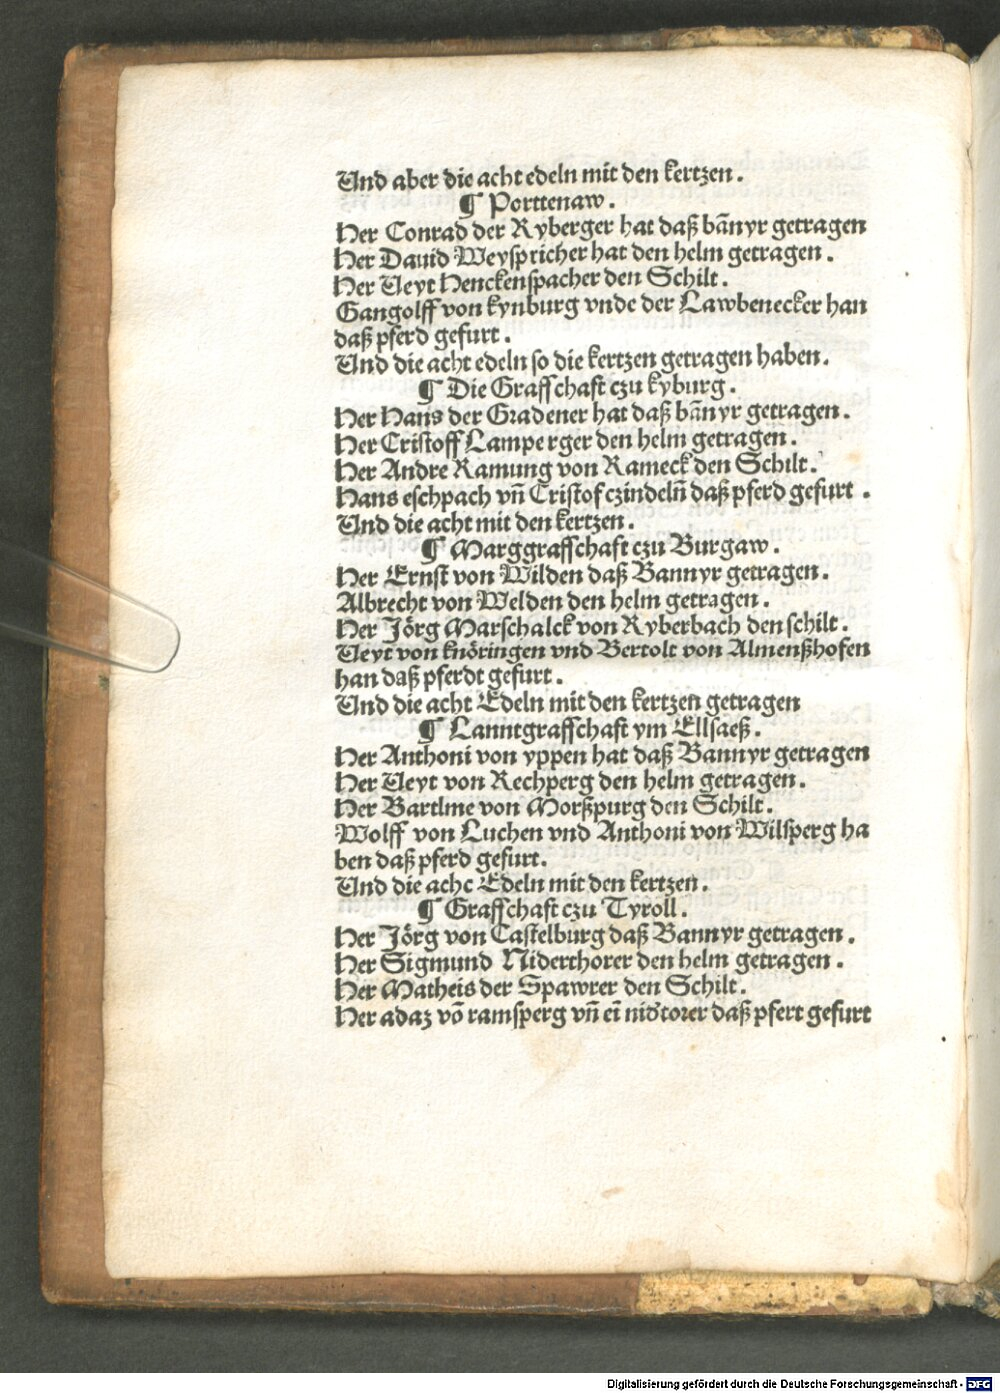 Und aber die acht edeln mit den kertzen .
¶ Porttenaw .
Her Conrad der Ryberger hat daß bãnyr getragen
Her Dauid Weyspricher hat den helm getragen .
Her Ueyt Henckenspacher den Schilt .
Gangolff von kynburg vnde der Lawbenecker han
daß pferd gefurt .
Und die acht edeln so die kertzen getragen haben .
¶ Die Graffschaft czu kyburg .
Her Hans der Gradener hat daß bãnyr getragen .
Her Cristoff Lamperger den helm getragen .
Her Andre Ramung von Rameck den Schilt .
Hans eschpach vñ Cristof czindelñ daß pferd gefurt .
Und die acht mit den kertzen .
¶ Marggraffschaft czu Burgaw .
Her Ernst von Wilden daß Bannyr getragen .
Albrecht von Welden den helm getragen .
Her Jörg Marschalck von Ryberbach den schilt .
Ueyt von knöringen vnd Bertolt von Almenßhofen
han daß pferdt gefurt .
Und die acht Edeln mit den kertzen getragen
¶ Lanntgraffschaft ym Ellsaeß .
Her Anthoni von yppen hat daß Bannyr getragen
Her Ueyt von Rechperg den helm getragen .
Her Bartlme von Morßpurg den Schilt .
Wolff von Luchen vnd Anthoni von Wilsperg ha
ben daß pferd gefurt .
Und die achc Edeln mit den kertzen .
¶ Graffschaft czu Tyroll .
Her Jörg von Castelburg daß Bannyr getragen .
Her Sigmund Niderthorer den helm getragen .
Her Matheis der Spawrer den Schilt .
Her adaz võ ramsperg vñ eĩ nidtorer daß pfert gefurt
Digitalisierung gefördert durch die Deutsche Forschungsgemeinschaft - DFG